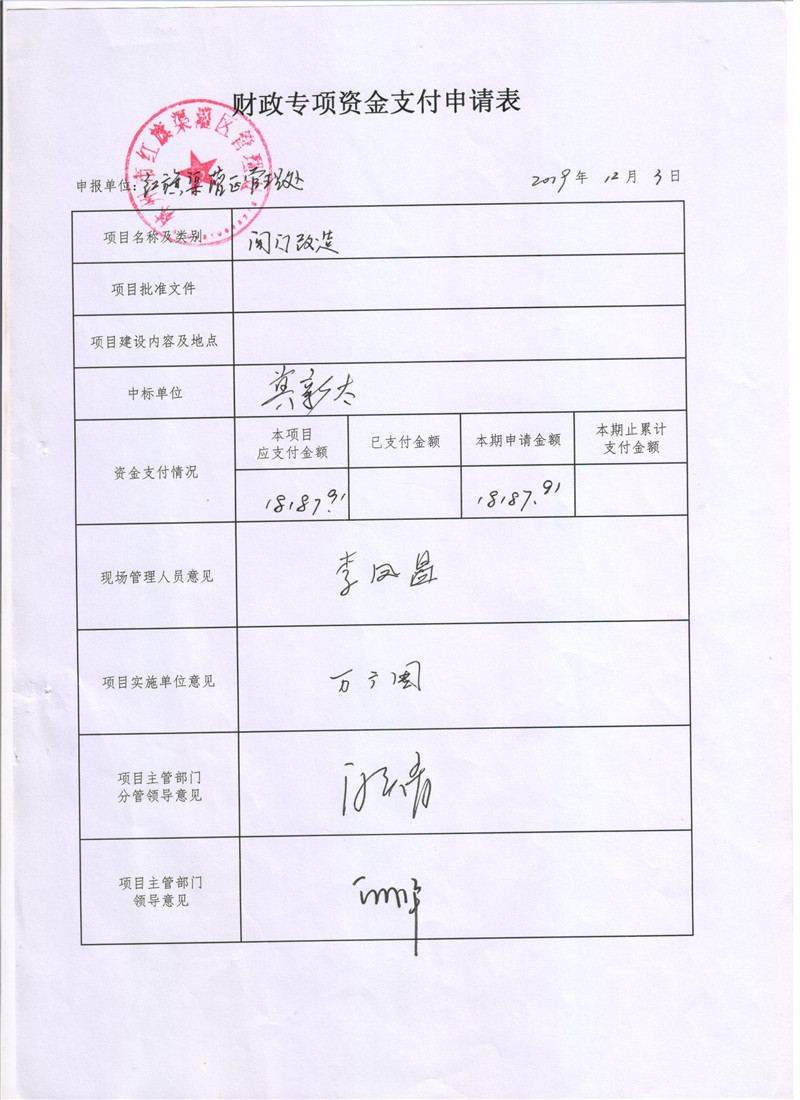 财政专项资金支付申请表
申报单位:红旗渠灌区管理处 2019年 12月 3日
项目名称及类别 闸门改造
项目批准文件
项目建设内容及地点
中标单位
资金支付情况
本项目
应支付金额
已支付金额
本期申请金额
本期止累计
支付金额
18187.91 18187.91
现场管理人员意见 李凤昌
项目实施单位意见
项目主管部门
分管领导意见
项目主管部门
领导意见
市红旗渠灌区管理